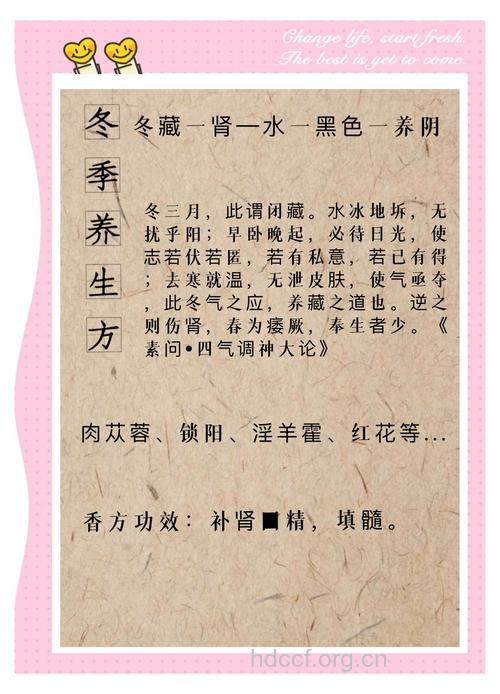 Change life, start fresh.
The best is yet to come.
冬季养生方
冬藏一肾一水一黑色一养阴
冬三月，此谓闭藏。水冰地坼，无
扰乎阳；早卧晚起，必待日光，使
志若伏若匿，若有私意，若已有得
；去寒就温，无泄皮肤，使气亟夺
，此冬气之应，养藏之道也。逆之
则伤肾，春为痿厥，奉生者少。《
素问•四气调神大论》
肉苁蓉、锁阳、淫羊霍、红花等...
香方功效：补肾■精，填髓。
hdccf.org.cn